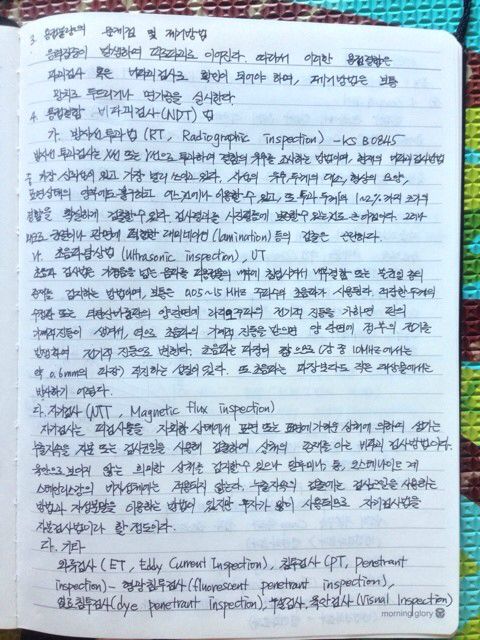 3. 용접불량의 문제점 및 제거방법
응력집중이 발생하여 피로파괴로 이어진다. 따라서 이러한 용접결함은
파괴검사 혹은 비파괴검사로 확인이 되어야 하며, 제거방법은 보통
망치로 두드리거나 연가공을 실시한다
4. 용접결함 비파괴검사(NDT) 법
가. 방사선투과법 (RT, Radiographic inspection) - KS B 0845
방사선 투과검사는 X선 또는 γ선으로 투과하여 결함의 유무를 조사하는 방법이며, 현재의 비파괴 검사방법
중 가장 신뢰성이 있고 가장 널리 쓰이고 있다. 시험의 유무, 두께의 대소, 형상의 모양,
표면상태의 양부에도 불구하고 어느것이나 이용할 수 있고, 또 투과 두께의 1~2% 까지 크기의
결함을 확실하게 검출할 수 있다. 검사결과는 사진필름에 보존할 수 있는지로 큰 이점이다. 그러나
미소한 균열이나 판면에 평행한 래미네이션 (lamination) 등의 검출은 곤란하다.
나. 초음파탐상법 (Ultrasonic inspection), UT
초음파 검사법은 가청음을 넘은 음파를 피검물의 내부에 침입시켜서 내부결함 또는 불균일 층의
존재를 검지하는 방법이며, 보통은 0.05~15 MHz 주파수의 초음파가 사용된다. 적당한 두께의
수정판 또는 티탄산바륨판의 양면에 고주파의 전기적 진동을 가하면 판의
기계적진동이 생겨서, 역으로 초음파의 기계적 진동을 받으면 양 단면에 정부의 전기를
발생하여 전기적 진동으로 변한다. 초음파는 파장이 짧으므로 (강 중 10MHz에서는
약 0.6mm의 파장) 직진하는 성질이 있다. 또 초음파는 파장보다도 작은 대상물에서는
반사하기 어렵다.
다. 자기검사 (MT, Magnetic flux inspection)
자기검사는 피검사물을 자화한 상태에서 표면 또는 표면에 가까운 상처에 의하여 생기는
누설자속을 자분 또는 검사코일을 사용해 검출하여 상처의 존재를 아는 비파괴 검사방법이다.
육안으로 보이지 않는 희미한 상처를 검지할 수 있으나 알루미늄, 동, 오스테나이트계
스테인리스강의 비자성체에는 적용되지 않는다. 누설자속의 검출에는 검사코일을 사용하는
방법과 자성분말을 이용하는 방법이 있지만 후자가 많이 사용되므로 자기검사법을
자분검사법이라 할 정도이다.
다. 기타
와류검사 (ET, Eddy Current Inspection), 침투검사 (PT, penetrant
inspection) - 형광침투검사 (fluorescent penetrant inspection),
염료침투검사 (dye penetrant inspection), 누설검사, 육안검사 (Visual Inspection)
morning glory